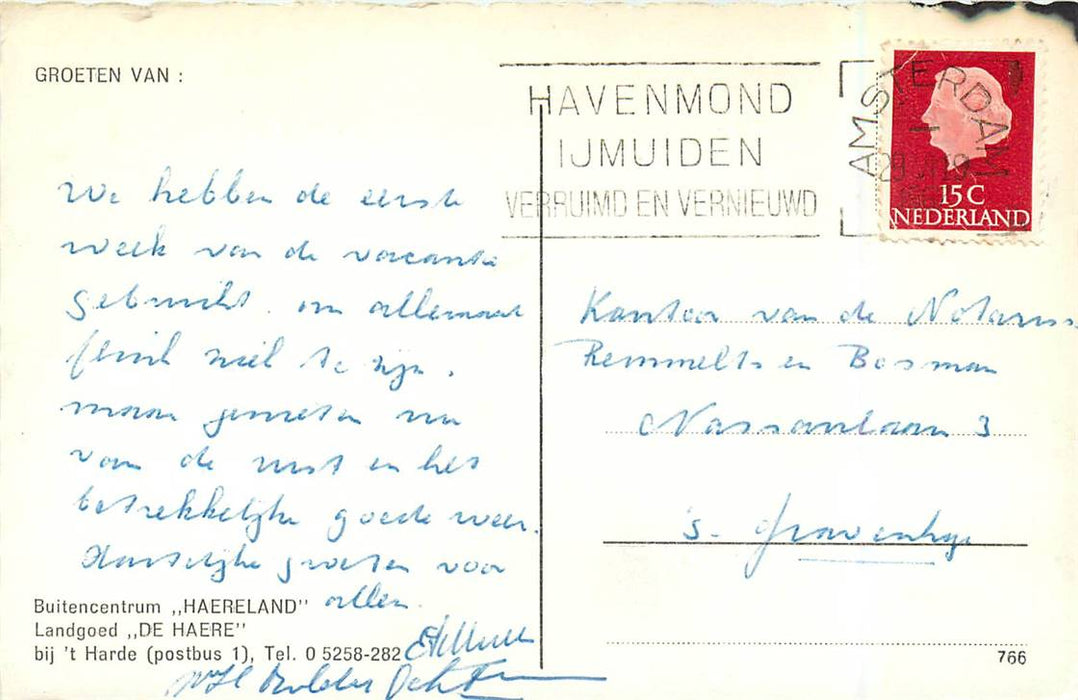 GROETEN VAN :
HAVENMOND
IJMUIDEN
VERRUIMD EN VERNIEUWD
AMSTERDAM
15 C
NEDERLAND
We hebben de eerste
week van de vacantie
gebruikt om allemaal
flink ziek te zijn,
maar genieten nu
van de rust en het
betrekkelijke goede weer.
Hartelijke groeten voor
allen.
Kantoor van de Notaris
Remmelts en Bosman
Nassaulaan 3
's-Gravenhage
Buitencentrum „HAERELAND"
Landgoed „DE HAERE"
bij 't Harde (postbus 1), Tel. 0 5258-282
766